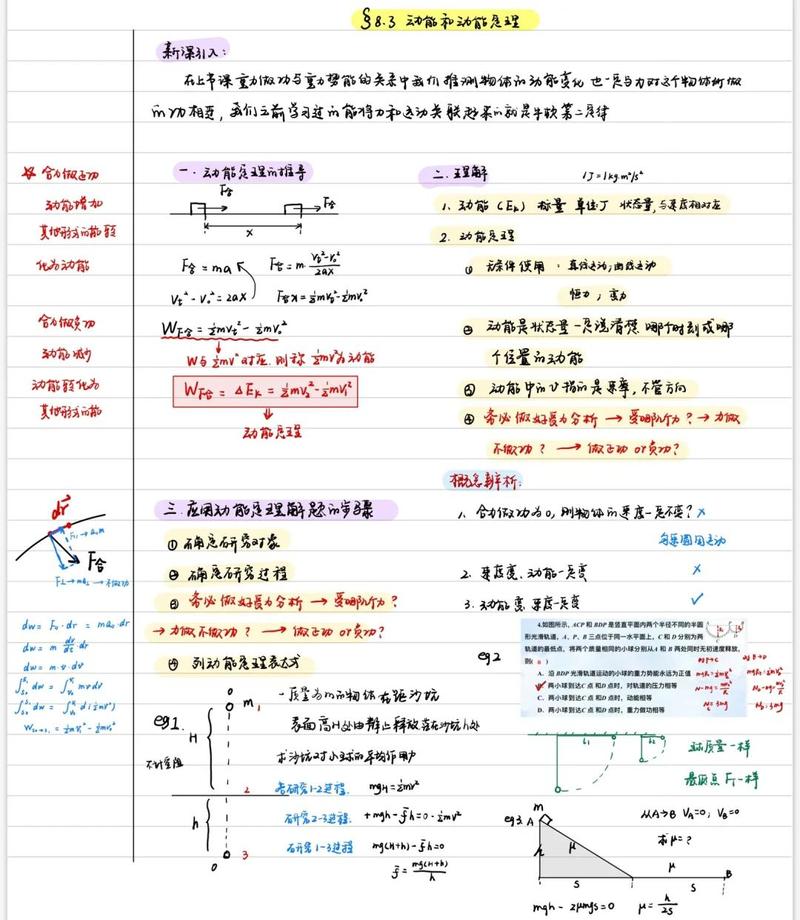 §8.3 动能和动能定理
新课引入:
在上节课重力做功与重力势能的关系中我们推测物体的动能变化也一定与力对这个物体所做
的功相连,我们之前学习过的能将力和运动关联起来的就是牛顿第二定律
☆ 合力做正功
动能增加
其他形式的能转
化为动能
合力做负功
动能减少
动能转化为
其他形式的能
一. 动能定理的推导
F合
F合
x
F合=ma
F合=m (Vt²-V0²)/2ax
Vt²-V0²=2ax
F合x=½mVt²-½mV0²
WF合=½mVt²-½mV0²
W与½mv²对应.则称½mv²为动能
WF合=ΔEk=½mV2²-½mV1²
动能定理
二. 理解
1J=1kg·m²/s²
1. 动能(Ek) 标量 单位J 状态量,与速度相对应
2. 动能定理
① 无条件使用:直线运动,曲线运动
恒力,变力
② 动能是状态量一定说清楚哪个时刻或哪
个位置的动能
③ 动能中的v指的是速率,不管方向
④ 务必做好受力分析→受哪几个力?→力做
不做功?→做正功or负功?
概念辨析:
1. 合力做功为0,则物体的速度一定不变?×
匀速圆周运动
2. 速度变、动能一定变 ×
3. 动能变 速度一定变 ✓
三. 应用动能定理解题的步骤
① 确定研究对象
② 确定研究过程
③ 务必做好受力分析→受哪几个力?
→力做不做功?→做正功or负功?
④ 列动能定理表达式
dr
F合
dw=m·v·dv
eg1.
不计空阻
H
h
m
1
2
3
0
一质量为m的物体在距沙坑
表面高H处由静止释放落在沙坑h处
求沙坑对小球的平均作用力
若研究1-2过程 mgH=½mv²
研究2-3过程. +mgh-f̄h=0-½mv²
研究1-3过程 mg(H+h)-f̄h=0
f̄=mg(H+h)/h
eg2
4.如图所示,ACP和BDP是竖直平面内两个半径不同的半圆
形光滑轨道,A、P、B三点位于同一水平面上,C和D分别为两
轨道的最低点,将两个质量相同的小球分别从A和B两处同时无初速度释放,
则( B )
A. 沿BDP光滑轨道运动的小球的重力势能永远为正值
B. 两小球到达C点和D点时,对轨道的压力相等
C. 两小球到达C点和D点时,动能相等
D. 两小球到达C点和D点时,重力做功相等
L1
L2
球质量一样
最低点FT一样
eg3.
m
A
h
μ
S
μ
S
B
从A→B VA=0,VB=0
求μ=?
mgh-2μmgs=0 μ=h/2S